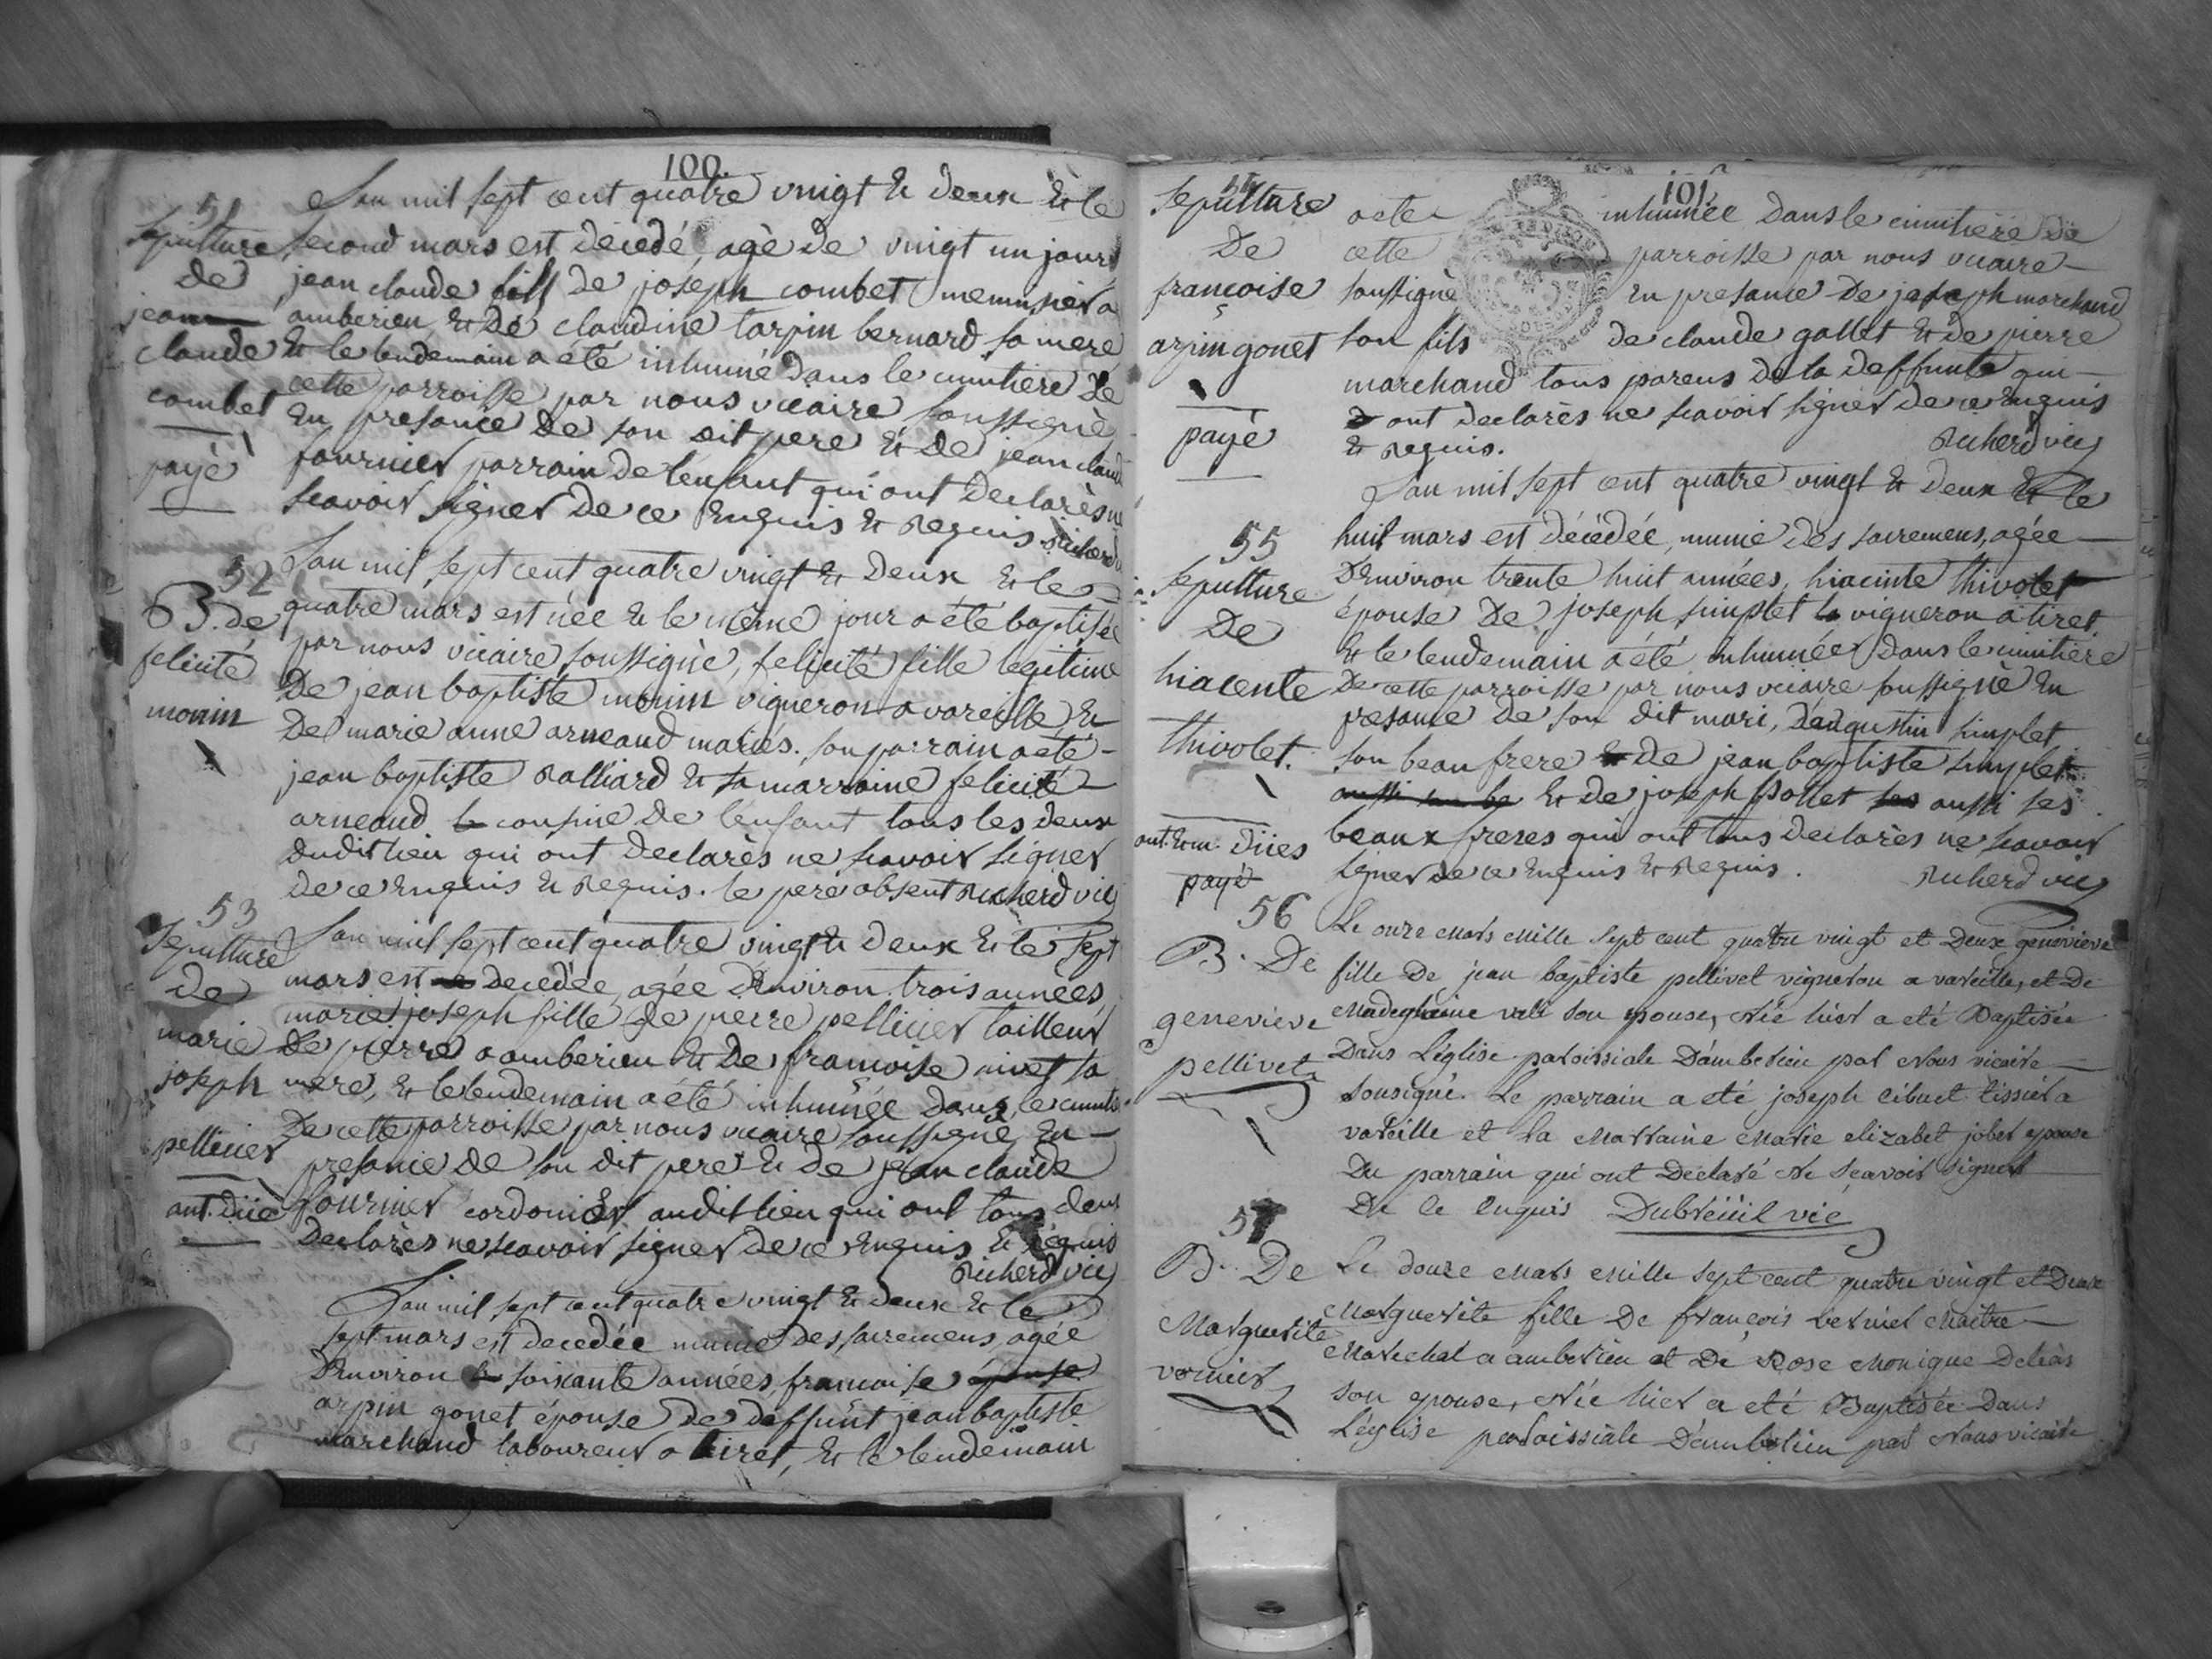 100.
51
Sepulture
de
jean
claude
combet
payé
L'an mil sept cent quatre vingt et deux et le
second mars est décédé, agè de vingt un jours
jean claude fils de joseph combet menusier a
amberieu et de claudine tarpin bernard sa mere
et le lendemain a été inhumé dans le cimitiere de
cette parroisse par nous vicaire soussignè
en presance de son dit pere et de jean claude
fournier parrain de l'enfant qui ont declarès ne
scavoir signer de ce enquis et requis. Richerd
52
B. de
felicité
monin
L'an mil sept cent quatre vingt et deux et le
quatre mars est nèe et le même jour a été baptisée
par nous vicaire soussignè, felicité fille legitime
de jean baptiste monin vigneron a vareille et
de marie anne arneaud mariés. son parrain a eté
jean baptiste ralliard et sa marraine felicité
arneaud la cousine de l'enfant tous les deux
dudit lieu qui ont declarès ne scavoir signer
de ce enquis et requis. le pere absent Richerd vic
53
Sepulture
de
marie
joseph
pellicier
ant. diie
L'an mil sept cent quatre vingt et deux et le sept
mars est decedée, agée d'environ trois années
marie joseph fille de pierre pellicier tailleur
de pierre a amberieu et de francoise nivet sa
mere, et le lendemain a été inhumée dans le cimit.
de cette parroisse par nous vicaire soussigné en
presance de son dit pere et de jean claude
fournier cordonier audit lieu qui ont tous deux
declarès ne scavoir signer de ce enquis et requis
Richerd vic
L'an mil sept cent quatre vingt et deux et le
sept mars est decedée munie des sacremens, agée
d'environ soixante années, francoise épouse
arpin gonet épouse de deffunt jean baptiste
marchand laboureur a tiret, et le lendemain
101.
54
Sepulture
De
francoise
arpin gonet
payé
a ete inhumée dans le cimitiere de
cette parroisse par nous vicaire
soussigné en presance de joseph marchand
son fils de claude gallet et de pierre
marchand tous parens de la deffunte qui
ont declarès ne scavoir signer de ce enquis
et requis. Richerd vic
55
Sepulture
De
hiacente
thivolet.
payé
L'an mil sept cent quatre vingt et deux et le
huit mars est décédée, munie des sacremens, agée
d'environ trente huit années, hiacinte thivolet
épouse de joseph simplet vigneron a tiret.
et le lendemain a été inhumée dans le cimitiere
de cette parroisse par nous vicaire soussignè en
presance de son dit mari, d'augustin simplet
son beau frere de jean baptiste simplet
aussi son be et de joseph pollet aussi ses
beaux freres qui ont tous declarès ne scavoir
signer de ce enquis et requis. Richerd vic
56
B. De
genevieve
pellivet
Le onze mars mille sept cent quatre vingt et deux genevieve
fille de jean baptiste pellivet vigneron a vareille, et de
son epouse, née hier a eté Baptisée
Dans L'église paroissiale D'amberieu par nous vicaire
sousigné. Le parrain a eté joseph cibuet tissier a
vareille et La marraine marie elizabet jobet epouse
Du parrain qui ont Declaré ne scavoir signer
De ce enquis Dubreüil vic
57
B. De
Marguerite
vernier
Le douze mars mille sept cent quatre vingt et Deux
marguerite fille De françois vernier maitre
marechal a amberieu et De Rose monique
son epouse, née hier a eté Baptisée dans
L'église paroissiale D'amberieu par nous vicaire